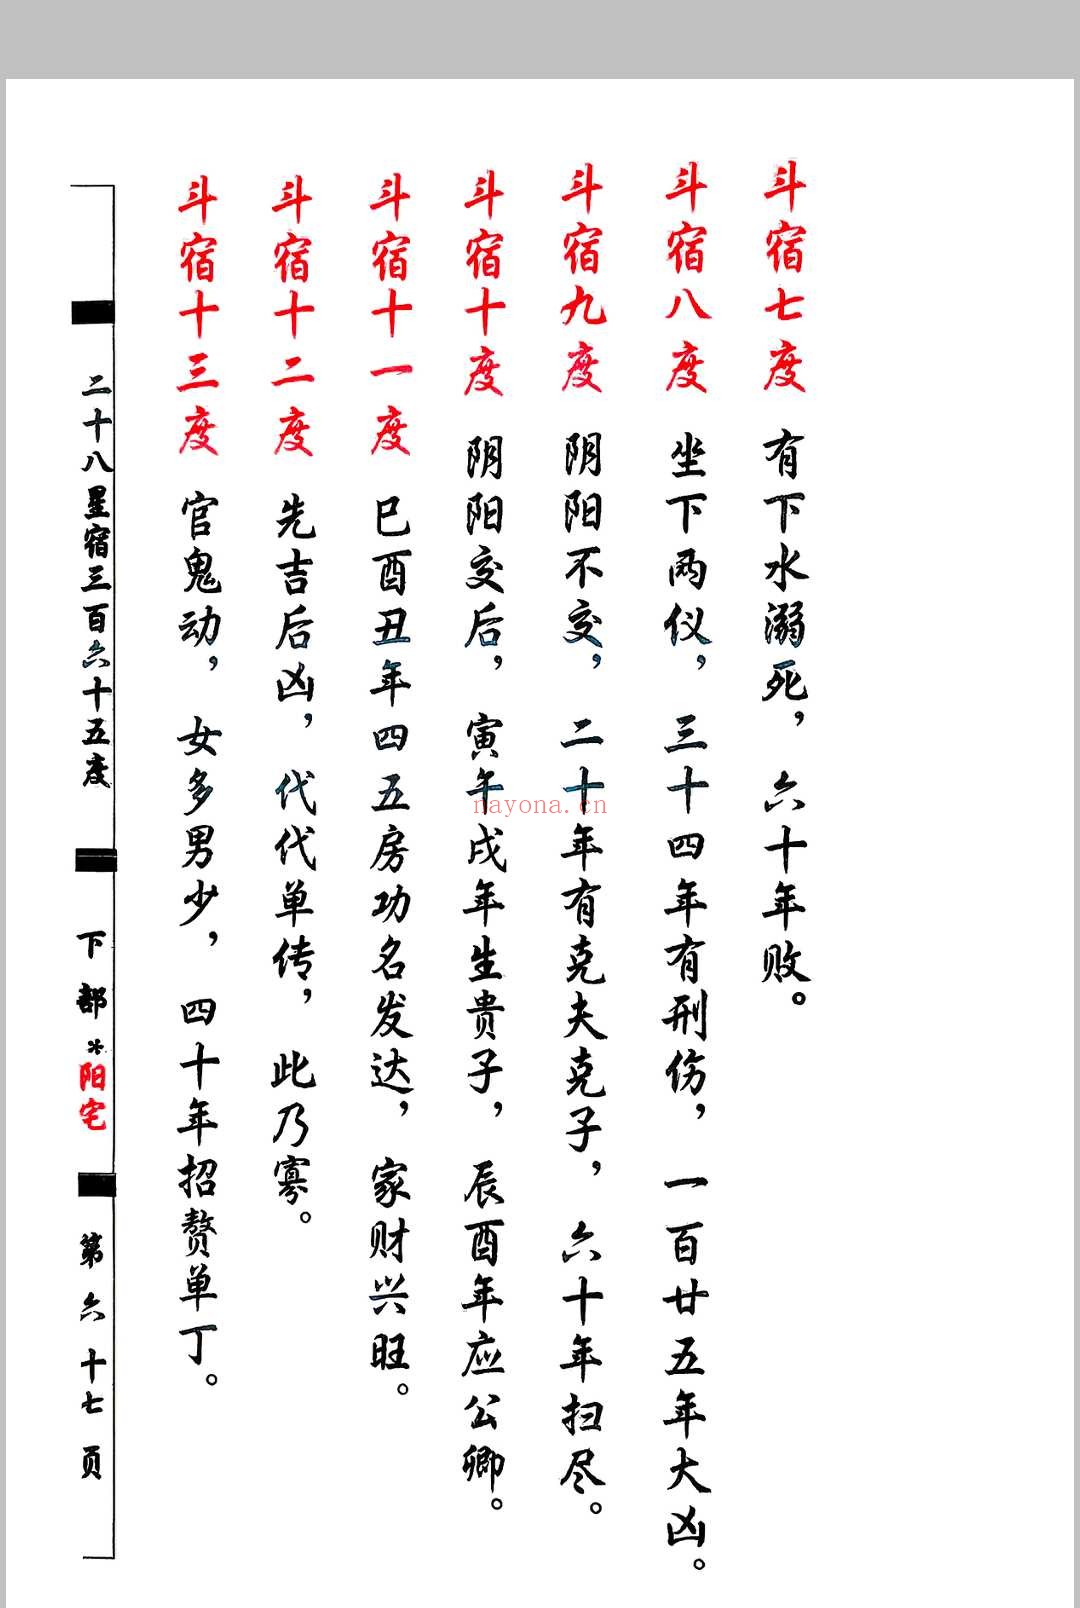 斗宿七度 有下水溺死，六十年败。
斗宿八度 坐下两仪，三十四年有刑伤，一百廿五年大凶。
斗宿九度 阴阳不交，二十年有克夫克子，六十年扫尽。
斗宿十度 阴阳交后，寅年戌年生贵子，辰酉年应公卿。
斗宿十一度 巳酉丑年四五房功名发达，家财兴旺。
斗宿十二度 先吉后凶，代代单传，此乃寡。
斗宿十三度 官鬼动，女多男少，四十年招赘单丁。
二十八星宿三百六十五度 下部*阳宅 第六十七页
nayona.cn